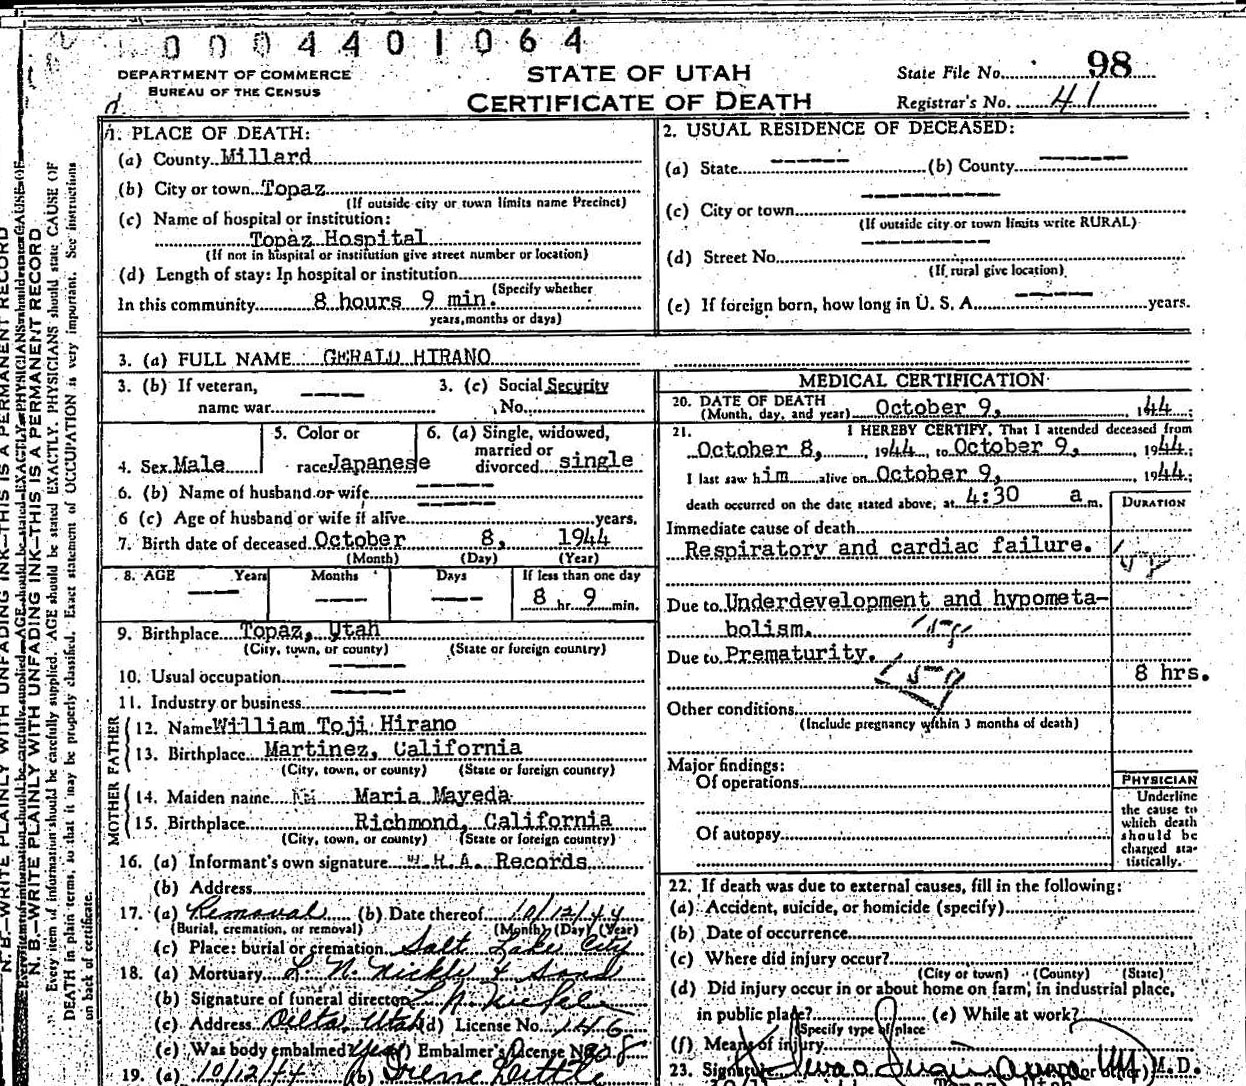 0004401064
DEPARTMENT OF COMMERCE
BUREAU OF THE CENSUS
STATE OF UTAH
CERTIFICATE OF DEATH
State File No. 98
Registrar's No. 41
1. PLACE OF DEATH:
(a) County Millard
(b) City or town Topaz
(If outside city or town limits name Precinct)
(c) Name of hospital or institution:
Topaz Hospital
(If not in hospital or institution give street number or location)
(d) Length of stay: In hospital or institution
(Specify whether
In this community 8 hours 9 min.
years, months or days)
2. USUAL RESIDENCE OF DECEASED:
(a) State (b) County
(c) City or town
(If outside city or town limits write RURAL)
(d) Street No.
(If rural give location)
(e) If foreign born, how long in U. S. A. years.
3. (a) FULL NAME GERALD HIRANO
3. (b) If veteran, 3. (c) Social Security
name war No.
4. Sex Male
5. Color or
race Japanese
6. (a) Single, widowed,
married or
divorced single
6. (b) Name of husband or wife
6 (c) Age of husband or wife if alive years.
7. Birth date of deceased October 8, 1944
(Month) (Day) (Year)
8. AGE Years Months Days If less than one day
8 hr. 9 min.
9. Birthplace Topaz, Utah
(City, town, or county) (State or foreign country)
10. Usual occupation
11. Industry or business
FATHER
12. Name William Toji Hirano
13. Birthplace Martinez, California
(City, town, or county) (State or foreign country)
MOTHER
14. Maiden name Maria Mayeda
15. Birthplace Richmond, California
(City, town, or county) (State or foreign country)
16. (a) Informant's own signature W.R.A. Records
(b) Address
17. (a) Removal (b) Date thereof 10/12/44
(Burial, cremation, or removal) (Month) (Day) (Year)
(c) Place: burial or cremation Salt Lake City
18. (a) Mortuary
(b) Signature of funeral director
(c) Address Delta, Utah (d) License No. 146
(e) Was body embalmed? Yes (f) Embalmer's License No.
19. (a) 10/12/44 (b) Irene
MEDICAL CERTIFICATION
20. DATE OF DEATH
(Month, day, and year) October 9, 1944
21. I HEREBY CERTIFY, That I attended deceased from
October 8, 1944, to October 9, 1944;
I last saw him alive on October 9, 1944;
death occurred on the date stated above, at 4:30 a m.
DURATION
Immediate cause of death
Respiratory and cardiac failure.
Due to Underdevelopment and hypometa-
bolism.
Due to Prematurity.
8 hrs.
Other conditions
(Include pregnancy within 3 months of death)
Major findings:
Of operations
Of autopsy
PHYSICIAN
Underline
the cause to
which death
should be
charged sta-
tistically.
22. If death was due to external causes, fill in the following:
(a) Accident, suicide, or homicide (specify)
(b) Date of occurrence
(c) Where did injury occur?
(City or town) (County) (State)
(d) Did injury occur in or about home on farm, in industrial place,
in public place? (e) While at work?
(Specify type of place
(f) Means of injury
23. Signature M.D.
N. B.—WRITE PLAINLY WITH UNFADING INK—THIS IS A PERMANENT RECORD
Every item of information should be carefully supplied. AGE should be stated EXACTLY. PHYSICIANS should state CAUSE OF
DEATH in plain terms, so that it may be properly classified. Exact statement of OCCUPATION is very important. See instructions
on back of certificate.